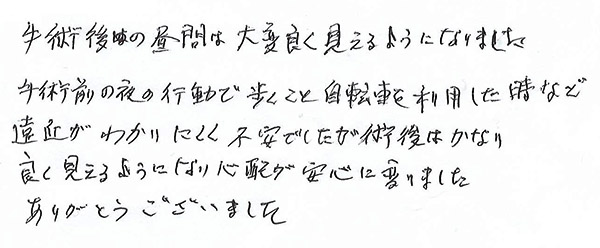 手術後の昼間は大変良く見えるようになりました
手術前の夜の行動で歩くこと自転車を利用した時など
遠近がわかりにくく不安でしたが術後はかなり
良く見えるようになり心配が安心に変りました
ありがとうございました